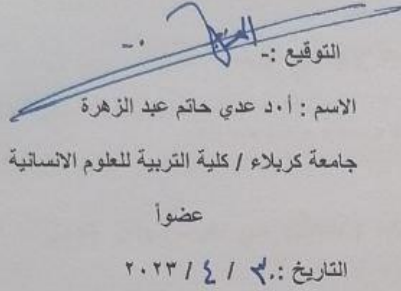 التوقيع :-
الاسم : أ.د عدي حاتم عبد الزهرة
جامعة كربلاء / كلية التربية للعلوم الانسانية
عضواً
التاريخ : ٣٠ / ٤ / ٢٠٢٣